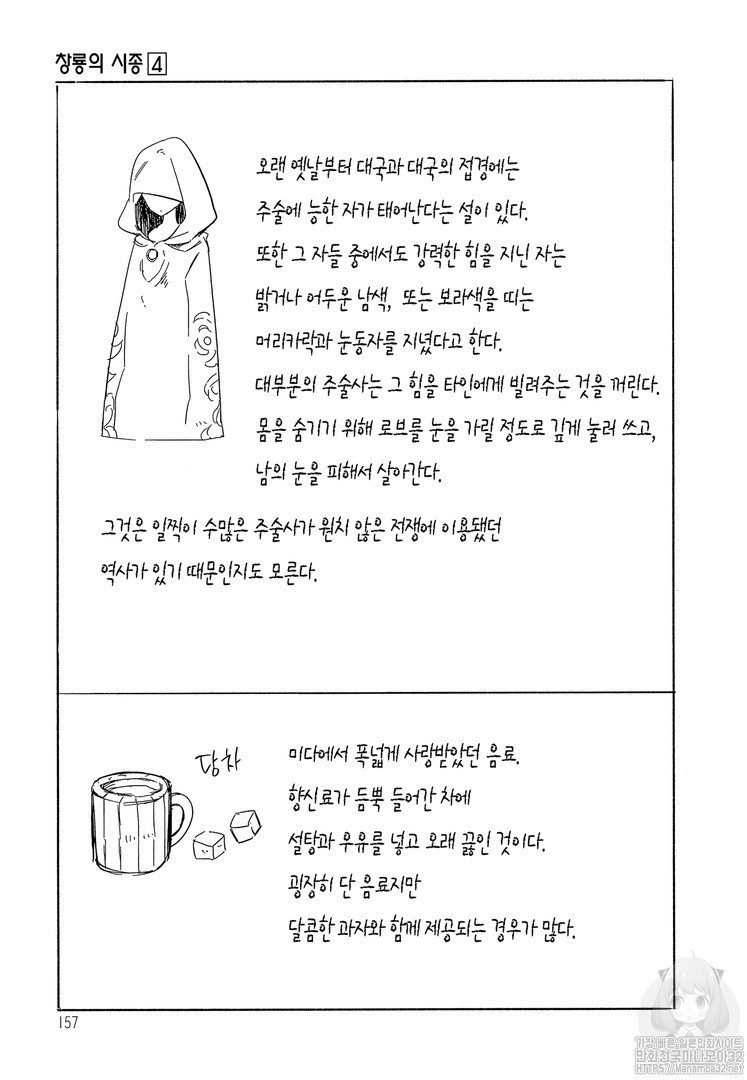 창룡의 시종 4
오랜 옛날부터 대국과 대국의 접경에는
주술에 능한 자가 태어난다는 설이 있다.
또한 그 자들 중에서도 강력한 힘을 지닌 자는
밝거나 어두운 남색, 또는 보라색을 띠는
머리카락과 눈동자를 지녔다고 한다.
대부분의 주술사는 그 힘을 타인에게 빌려주는 것을 꺼린다.
몸을 숨기기 위해 로브를 눈을 가릴 정도로 깊게 눌러 쓰고,
남의 눈을 피해서 살아간다.
그것은 일찍이 수많은 주술사가 원치 않은 전쟁에 이용됐던
역사가 있기 때문인지도 모른다.
당차
미다에서 폭넓게 사랑받았던 음료.
향신료가 듬뿍 들어간 차에
설탕과 우유를 넣고 오래 끓인 것이다.
굉장히 단 음료지만
달콤한 과자와 함께 제공되는 경우가 많다.
157
가장 빠른 일본만화사이트
만화천국미나모아32
HTTPS://Manamoa32.net